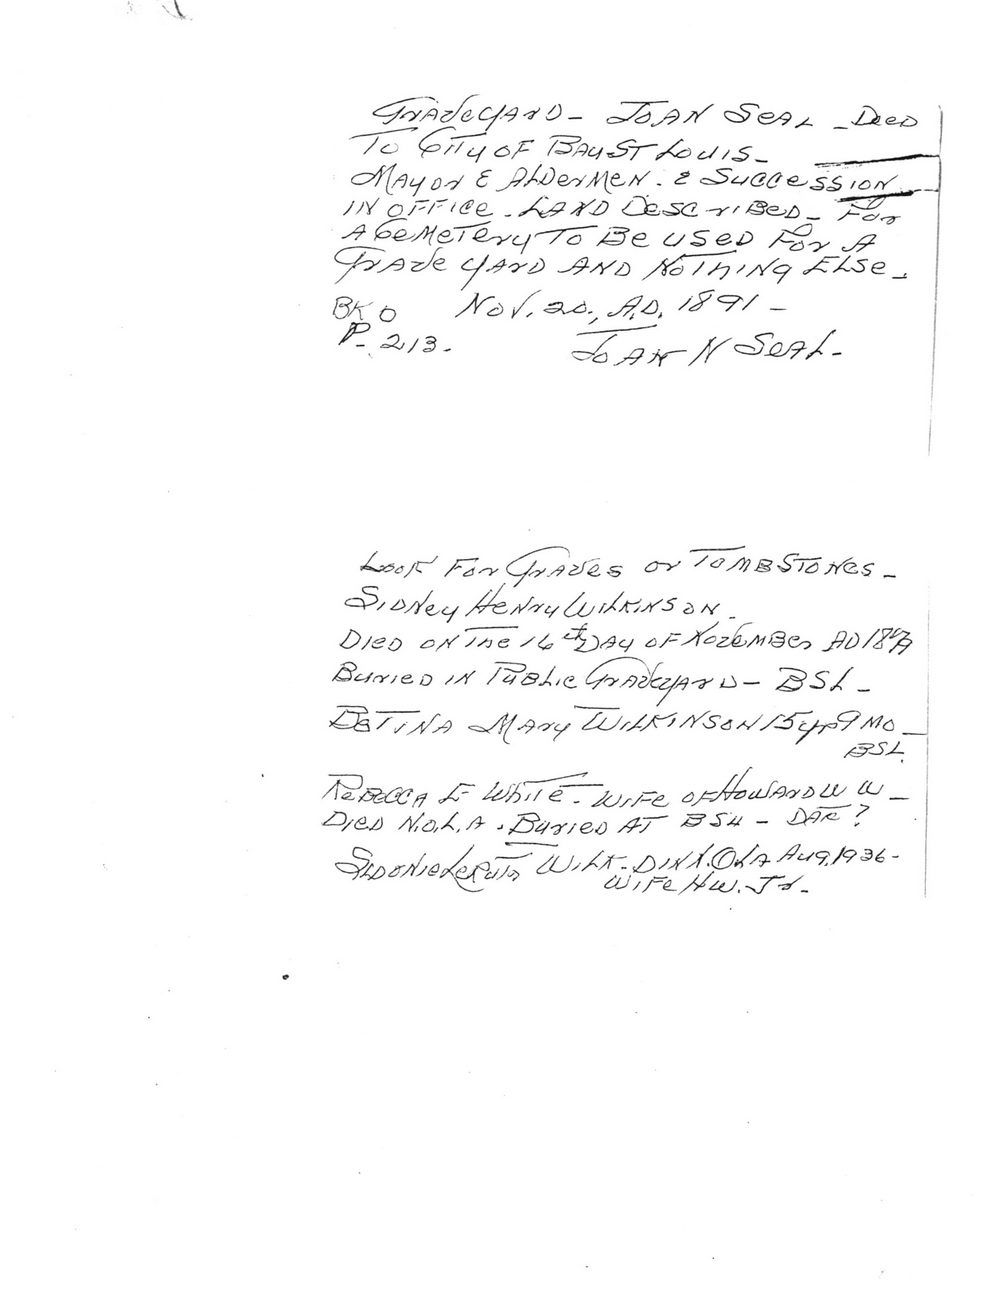 Graveyard - Joan Seal - Deed
To City of Bay St Louis -
Mayor & Aldermen. & Succession
in office. Land Described - For
A Cemetery To Be used For A
Grave yard and Nothing Else -
BK O Nov. 20., A.D. 1891 -
P. 213. Joan N Seal -
Look For Graves or Tombstones -
Sidney Henry Wilkinson.
Died on the 16th Day of November AD
Buried in Public Graveyard - BSL -
Mary Wilkinson 15 yr 9 mo -
BSL
Rebecca E White - Wife of Howard W W -
Died N.O.L.A. Buried at BSL - Dat ?
Wilk - D in N.O. La Aug. 1936 -
Wife H W. Jr -